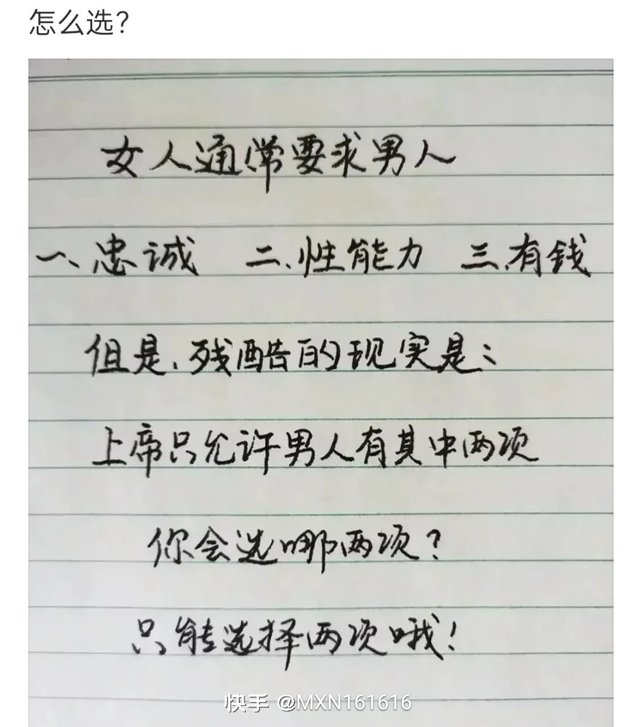 怎么选?
女人通常要求男人
一、忠诚 二、性能力 三、有钱
但是、残酷的现实是：
上帝只允许男人有其中两项
你会选哪两项？
只能选择两项哦！
快手 @MXN161616